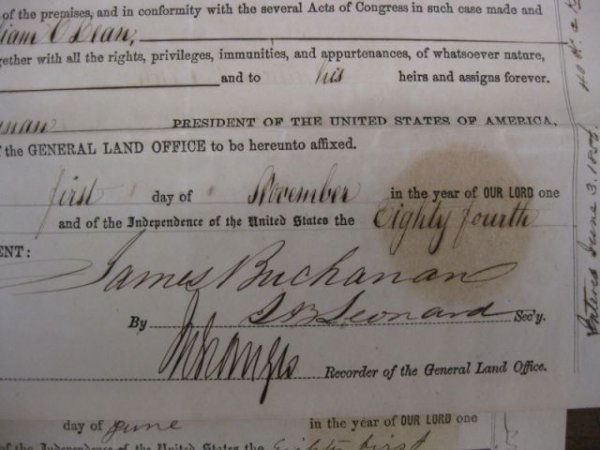 of the premises, and in conformity with the several Acts of Congress in such case made and
liam O Dean,
gether with all the rights, privileges, immunities, and appurtenances, of whatsoever nature,
and to his heirs and assigns forever.
PRESIDENT OF THE UNITED STATES OF AMERICA,
the GENERAL LAND OFFICE to be hereunto affixed.
first day of November in the year of OUR LORD one
and of the Independence of the United States the Eighty fourth
ENT:
James Buchanan
By Leonard Sec'y.
Recorder of the General Land Office.
day of June in the year of OUR LORD one
of the Independence of the United States the Eighty first
June 3.